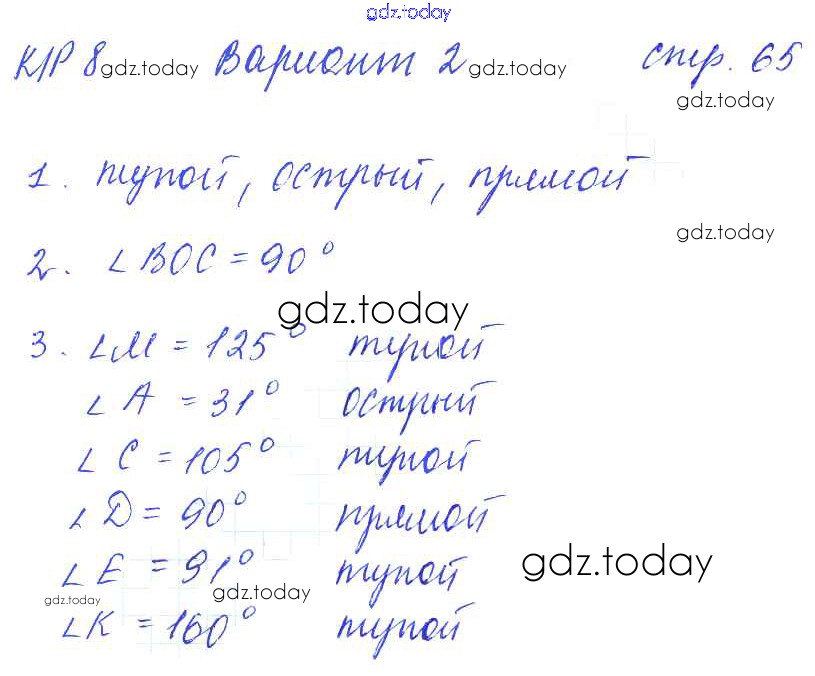 gdz.today
К/Р 8 gdz.today Вариант 2 gdz.today стр. 65
gdz.today
1. тупой, острый, прямой
gdz.today
2. ∠BOC = 90°
gdz.today
3. ∠M = 125° тупой
∠A = 31° острый
∠C = 105° тупой
∠D = 90° прямой
∠E = 91° тупой gdz.today
gdz.today gdz.today
∠K = 160° тупой